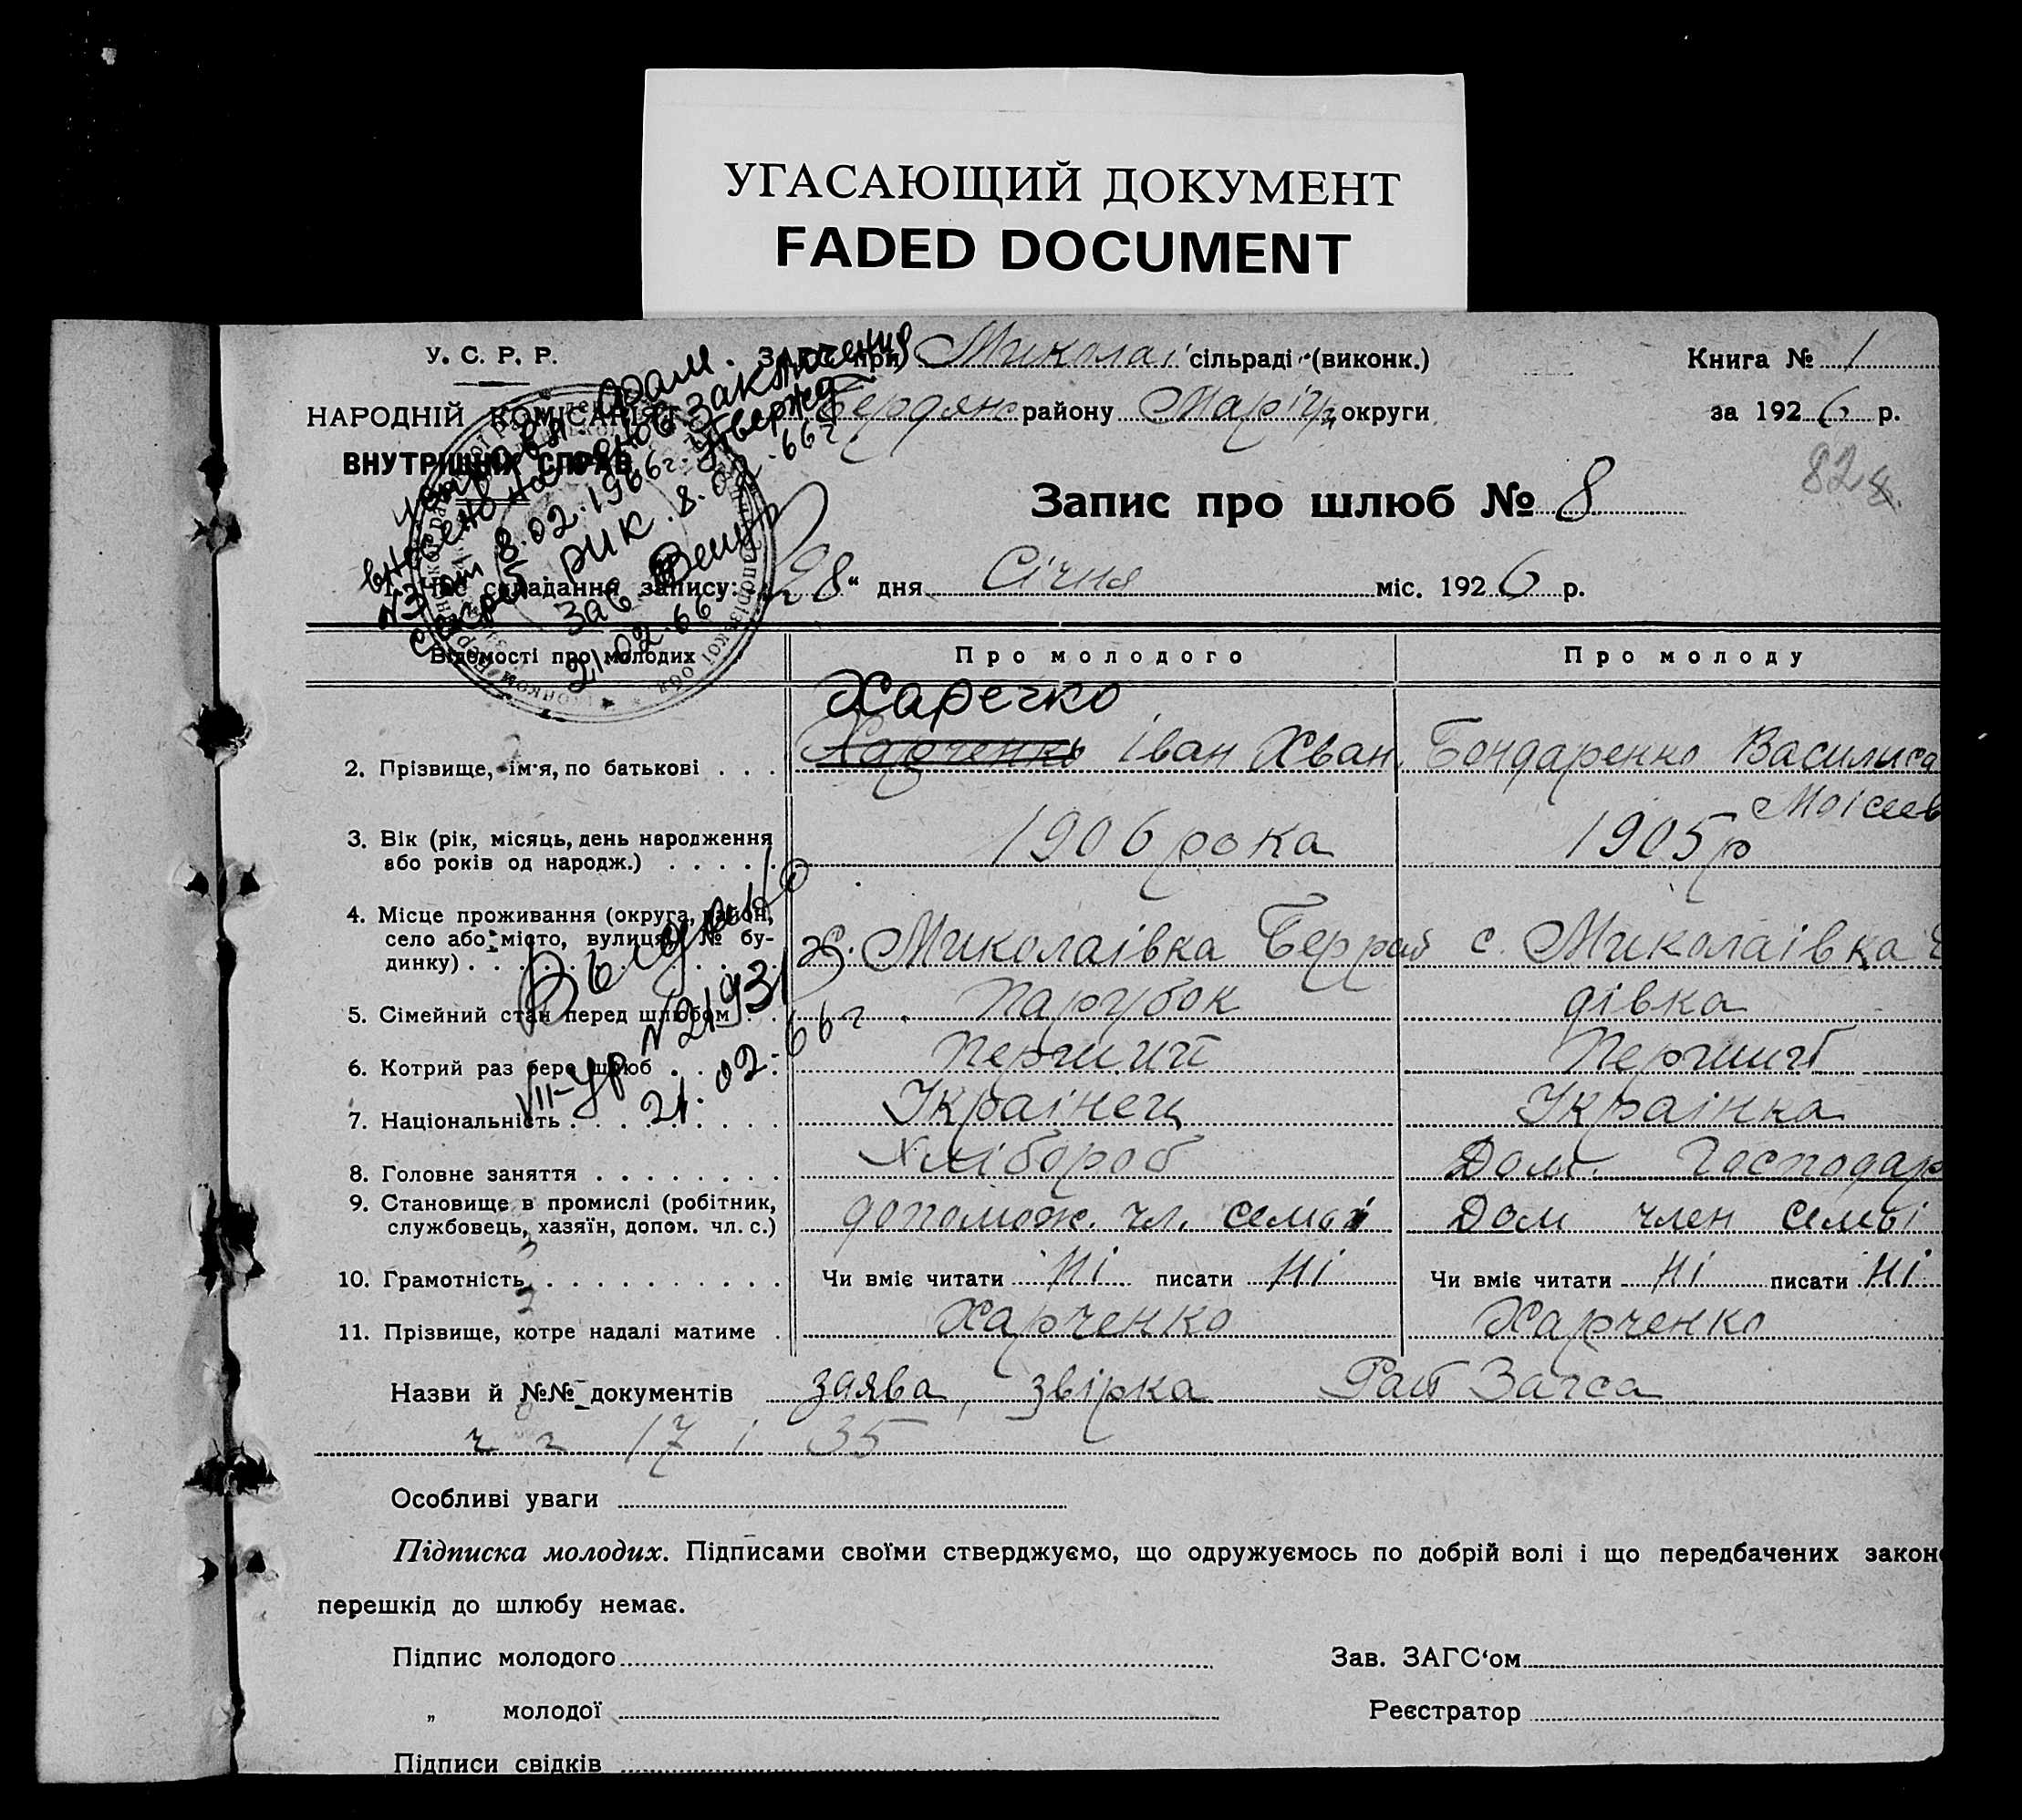 УГАСАЮЩИЙ ДОКУМЕНТ
FADED DOCUMENT
У. С. Р. Р.
ЗАГС при Миколаї сільраді (виконк.)
Книга № 1
НАРОДНІЙ КОМІСАРІЯТ
ВНУТРІШНІХ СПРАВ
Бердянс району Маріуп округи
за 1926 р.
82
Запис про шлюб № 8
исправл
внесено на основ заключения
№3 от 8.02.1966г. утвержд
РИК 8.02.66г
Зав
21.02.66
1. Час складання запису: „28“ дня Січня міс. 1926 р.
Відомості про молодих
Про молодого
Про молоду
Харечко
2. Прізвище, ім'я, по батькові . . . Харченко Іван Хван. Бондаренко Василиса
Моісеев
3. Вік (рік, місяць, день народження
або років од народж.) . . . . . 1906 рока 1905 р
4. Місце проживання (округа, район,
село або місто, вулиця, № бу-
динку) . . . с. Миколаівка Бер рай с. Миколаівка
Выдано
VII-УР №21931
21.02.66г.
5. Сімейний стан перед шлюбом . . Парубок дівка
6. Котрий раз бере шлюб . . . . Перший Перший
7. Національність . . . . . . . . Українец Українка
8. Головне заняття . . . . . . . . Хлібороб Дом. Господар
9. Становище в промислі (робітник,
службовець, хазяїн, допом. чл. с.) допомож. чл. семьі Дом член семьі
10. Грамотність . . . . . . . . . . Чи вміє читати Ні писати Ні Чи вміє читати Ні писати Ні
11. Прізвище, котре надалі матиме . Харченко Харченко
Назви й №№ документів заява, звірка Рай Загса
ч ч 17 і 35
Особливі уваги
Підписка молодих. Підписами своїми стверджуємо, що одружуємось по добрій волі і що передбачених закон
перешкід до шлюбу немає.
Підпис молодого
Зав. ЗАГС‘ом
„ молодої
Реєстратор
Підписи свідків